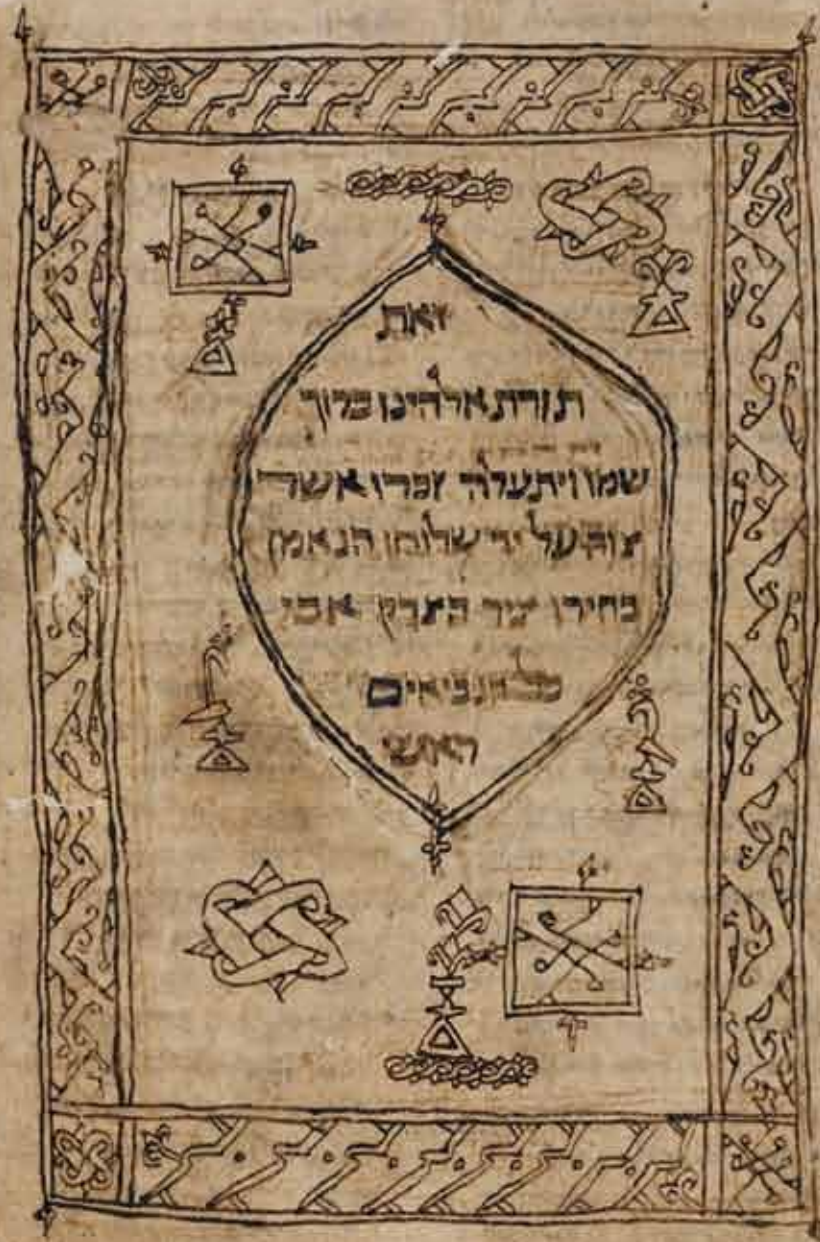 זאת
תורת אלהינו ברוך
שמו ויתעלה זכרו אשר
צוה על יד שלוחו הנאמן
בחירו ציר הצדק אבי
כל הנביאים